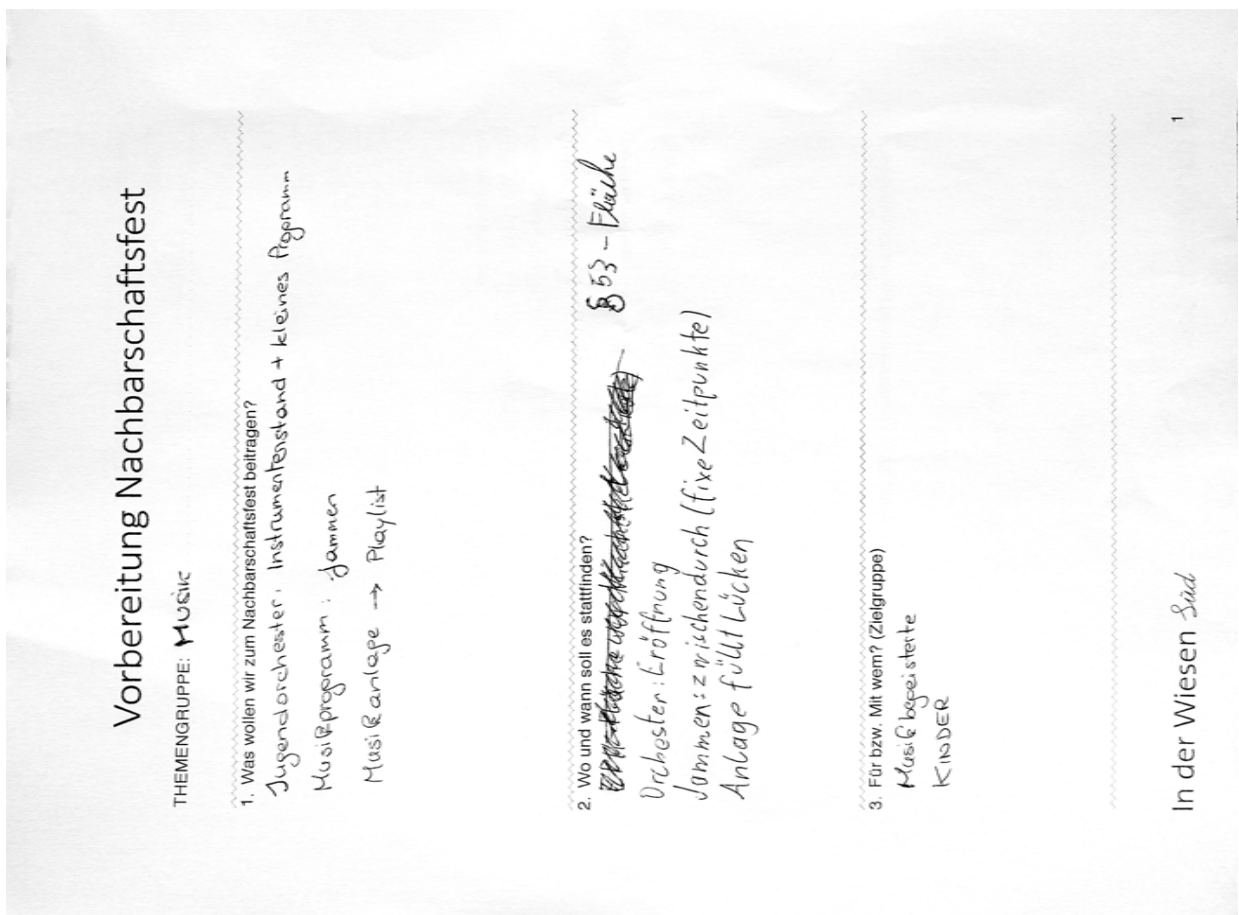 Vorbereitung Nachbarschaftsfest
THEMENGRUPPE: MUSIK
1. Was wollen wir zum Nachbarschaftsfest beitragen?
Jugendorchester: Instrumentenstand + kleines Programm
Musikprogramm: Jammen
Musikanlage → Playlist
2. Wo und wann soll es stattfinden?
§53-Fläche
Orchester: Eröffnung
Jammen: zwischendurch (fixe Zeitpunkte)
Anlage füllt Lücken
3. Für bzw. Mit wem? (Zielgruppe)
Musikbegeisterte
KINDER
In der Wiesen Süd
1